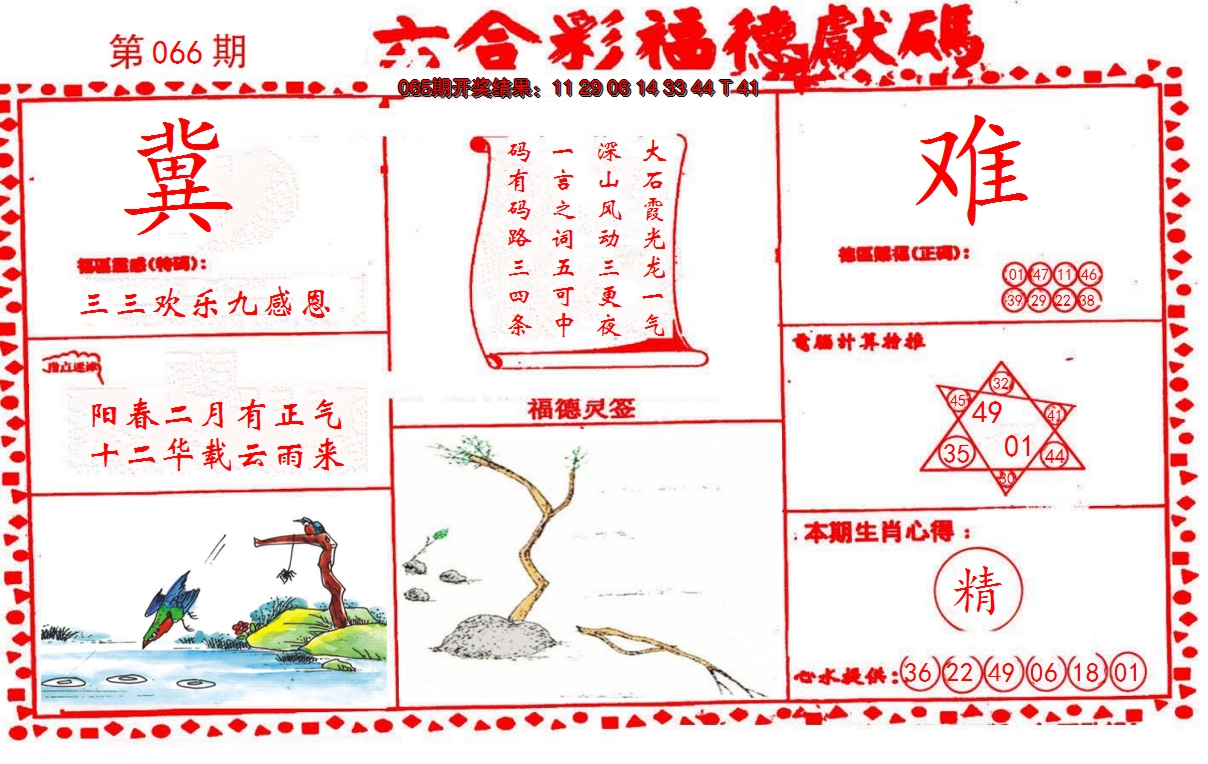 第 066 期
六合彩福德獻碼
065期开奖结果：11 29 06 14 33 44 T 41
冀
福區靈感(特碼)：
三三欢乐九感恩
指点迷津
阳春二月有正气
十二华载云雨来
大石霞光龙一气
深山风动三更夜
一言之词五可中
码有码路三四条
福德灵签
难
德區賜福(正碼)：
01 47 11 46
39 29 22 38
電腦計算推
32
45
49
41
35
01
44
30
本期生肖心得：
精
心水提供：36 22 49 06 18 01